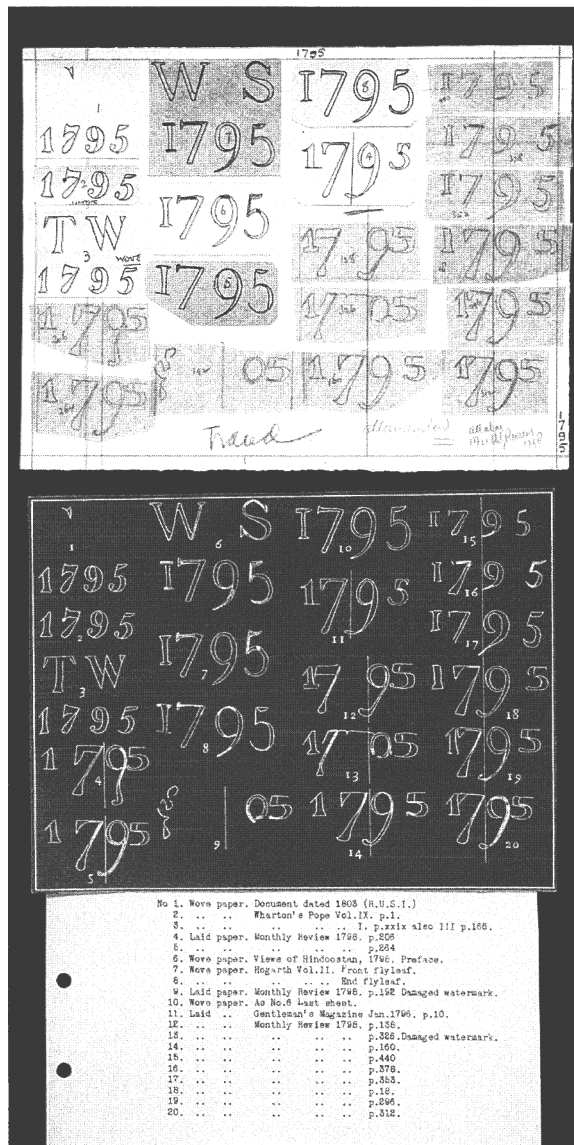 1795
1
1795
1795
TW
3 WOVE
1795
1795
1795
W S
1795
7
1795
6
1795
5
05
1795
8
1795
4
1705
1705
1795
1795
1795
1795
1795
1795
1795
Traced
1795
1
1795
1795
2
TW
3
1795
1795
4
1795
5
W S
6
1795
1795
7
1795
8
05
9
1795
10
1795
11
1795
12
1705
13
1795
14
1795
15
1795
16
1795
17
1795
18
1795
19
1795
20
No 1. Wove paper. Document dated 1803 (R.U.S.I.)
2. .. .. Wharton's Pope Vol.IX. p.1.
3. .. .. .. .. .. I. p.xxix also III p.165.
4. Laid paper. Monthly Review 1798. p.206
5. .. .. .. .. .. p.264
6. Wove paper. Views of Hindoostan, 1798. Preface.
7. Wove paper. Hogarth Vol.II. Front flyleaf.
8. .. .. .. .. .. End flyleaf.
9. Laid paper. Monthly Review 1798. p.192 Damaged watermark.
10. Wove paper. As No.6 Last sheet.
11. Laid .. Gentleman's Magazine Jan.1796. p.10.
12. .. .. Monthly Review 1798. p.138.
13. .. .. .. .. .. p.326.Damaged watermark.
14. .. .. .. .. .. p.160.
15. .. .. .. .. .. p.440
16. .. .. .. .. .. p.378.
17. .. .. .. .. .. p.353.
18. .. .. .. .. .. p.18.
19. .. .. .. .. .. p.296.
20. .. .. .. .. .. p.312.